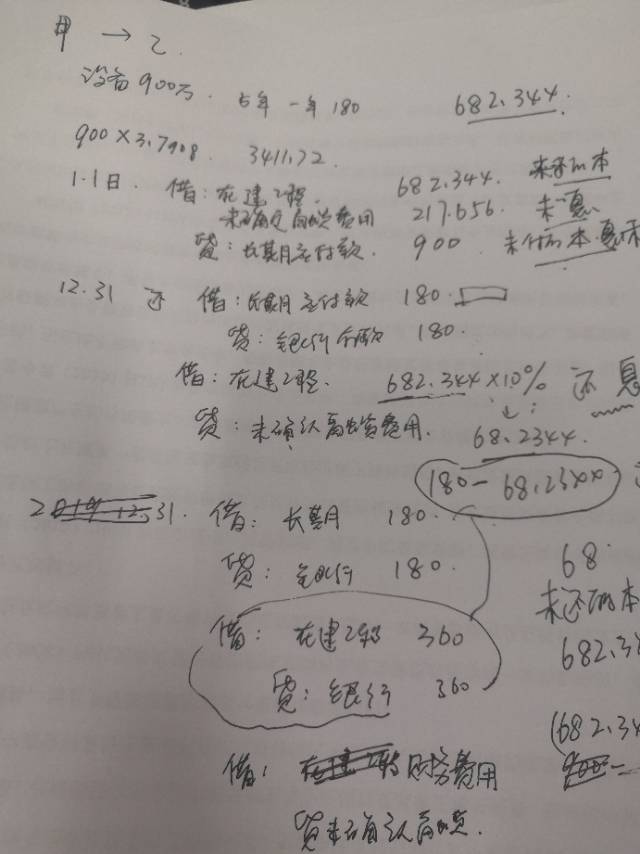 甲 → 乙.
设备900万. 5年 一年180 682.344.
900×3.7908. 3411.72.
1.1日. 借:在建工程. 682.344. 未还的本
未确定融资费用 217.656. 未 息
贷:长期应付款. 900 未付的本.息
12.31 还 借:长期应付款 180.
贷:银行存款 180.
借:在建工程. 682.344×10% 还息
贷:未确认融资费用. 68.2344.
180-68.23××
31. 借:长期 180.
贷:银行 180. 68.
借:在建工程 360 未还的本
贷:银行 360 682.3
借: 财务费用 (682.34
贷未确认融资.